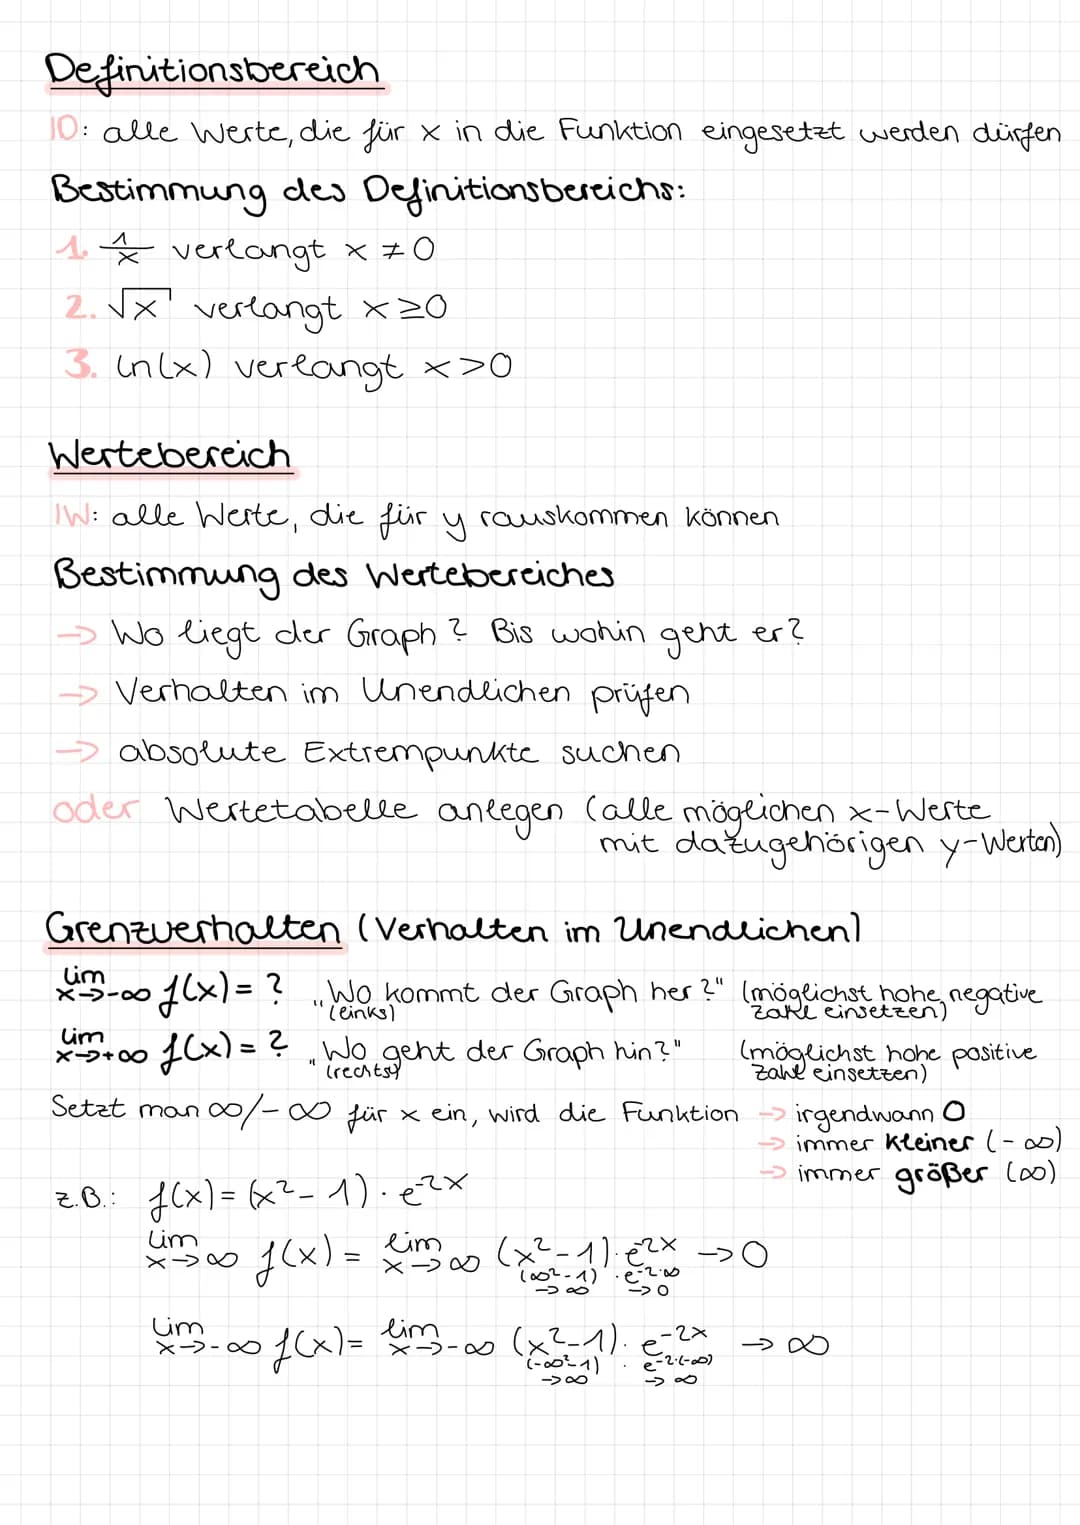 Definitionsbereich
ID: alle Werte, die für x in die Funktion eingesetzt werden dürfen
Bestimmung des Definitionsbereichs:
1. 1/x verlangt x ≠ 0
2. √x verlangt x ≥ 0
3. ln(x) verlangt x > 0
Wertebereich
IW: alle Werte, die für y rauskommen können
Bestimmung des Wertebereiches
→ Wo liegt der Graph? Bis wohin geht er?
→ Verhalten im Unendlichen prüfen
→ absolute Extrempunkte suchen
oder Wertetabelle anlegen (alle möglichen x-Werte
mit dazugehörigen y-Werten)
Grenzverhalten (Verhalten im Unendlichen)
lim x→-∞ f(x) = ? „Wo kommt der Graph her?" (möglichst hohe, negative
(links) Zahl einsetzen)
lim x→+∞ f(x) = ? „Wo geht der Graph hin?" (möglichst hohe positive
(rechts) Zahl einsetzen)
Setzt man ∞/-∞ für x ein, wird die Funktion → irgendwann 0
→ immer kleiner (-∞)
→ immer größer (∞)
z.B.: f(x) = (x²-1) · e^-2x
lim x→∞ f(x) = lim x→∞ (x²-1) · e^-2x → 0
(∞²-1) · e^-2·∞
→ ∞ → 0
lim x→-∞ f(x) = lim x→-∞ (x²-1) · e^-2x → ∞
(-∞²-1) · e^-2·(-∞)
→ ∞ → ∞